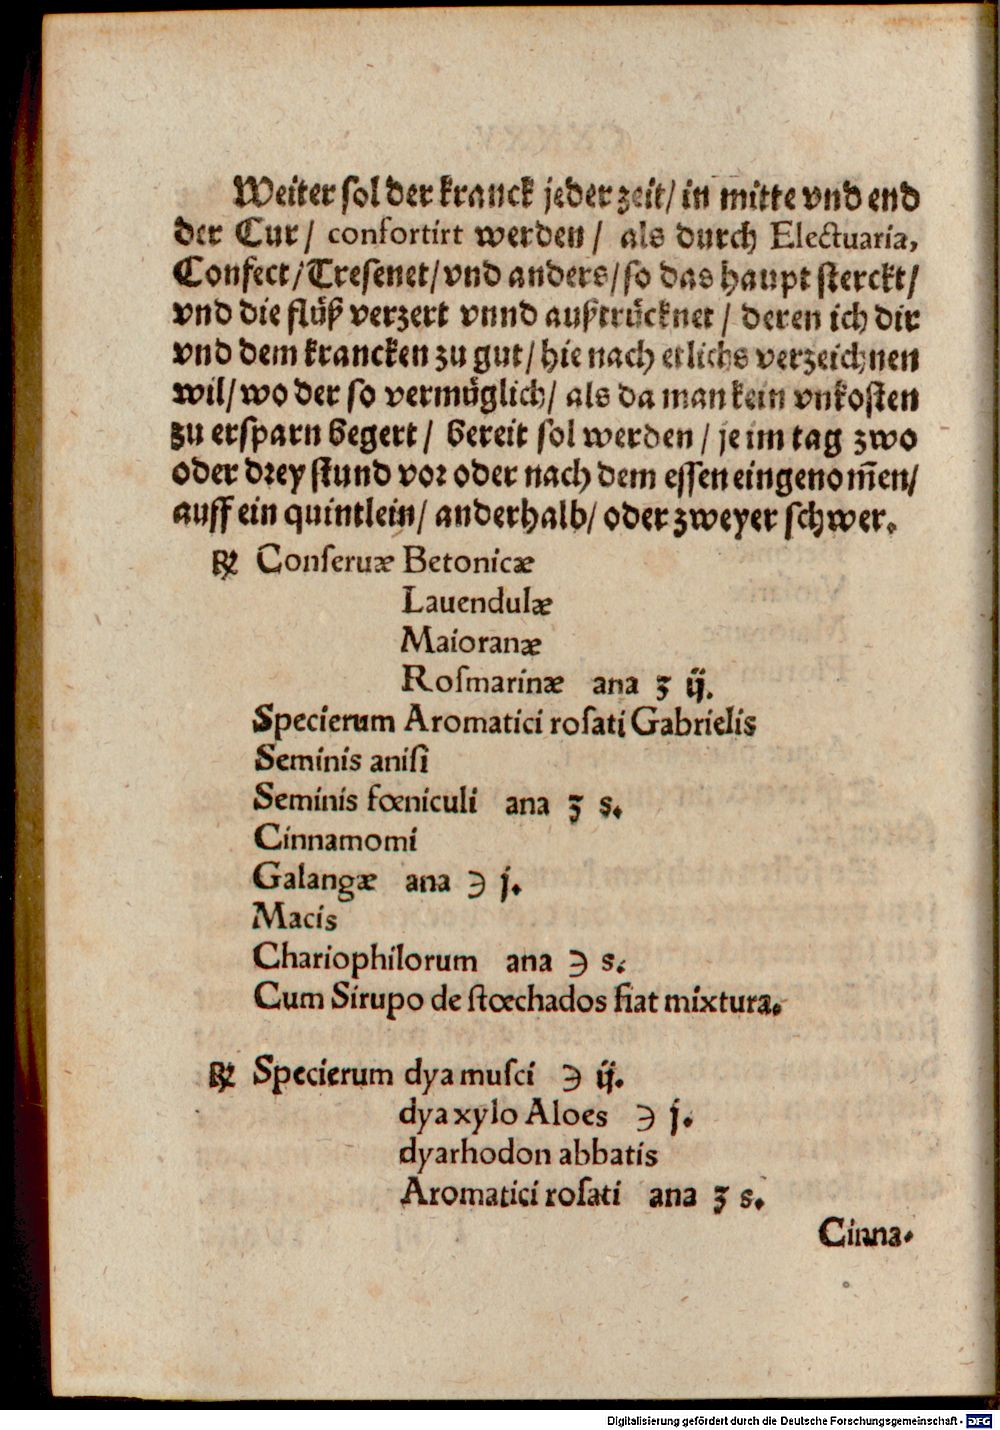 Weiter sol der kranck jeder zeit/ in mitte vnd end
der Cur/ confortirt werden/ als durch Electuaria,
Confect/Tresenet/vnd anders/so das haupt sterckt/
vnd die flüß verzert vnnd außtrücknet/ deren ich dir
vnd dem krancken zu gut/ hie nach etlichs verzeichnen
wil/wo der so vermüglich/ als da man kein vnkosten
zu ersparn begert/ bereit sol werden/ je im tag zwo
oder drey stund vor oder nach dem essen eingenom̃en/
auff ein quintlein/ anderhalb/ oder zweyer schwer.
℞ Conſeruæ Betonicæ
Lauendulæ
Maioranæ
Roſmarinæ ana ʒ ij.
Specierum Aromatici roſati Gabrielis
Seminis aniſi
Seminis fœniculi ana ʒ s.
Cinnamomi
Galangæ ana ℈ j.
Macis
Chariophilorum ana ℈ s.
Cum Sirupo de ſtœchados fiat mixtura.
℞ Specierum dya muſci ℈ ij.
dya xylo Aloes ℈ j.
dyarhodon abbatis
Aromatici roſati ana ʒ s.
Cinna-
Digitalisierung gefördert durch die Deutsche Forschungsgemeinschaft - DFG